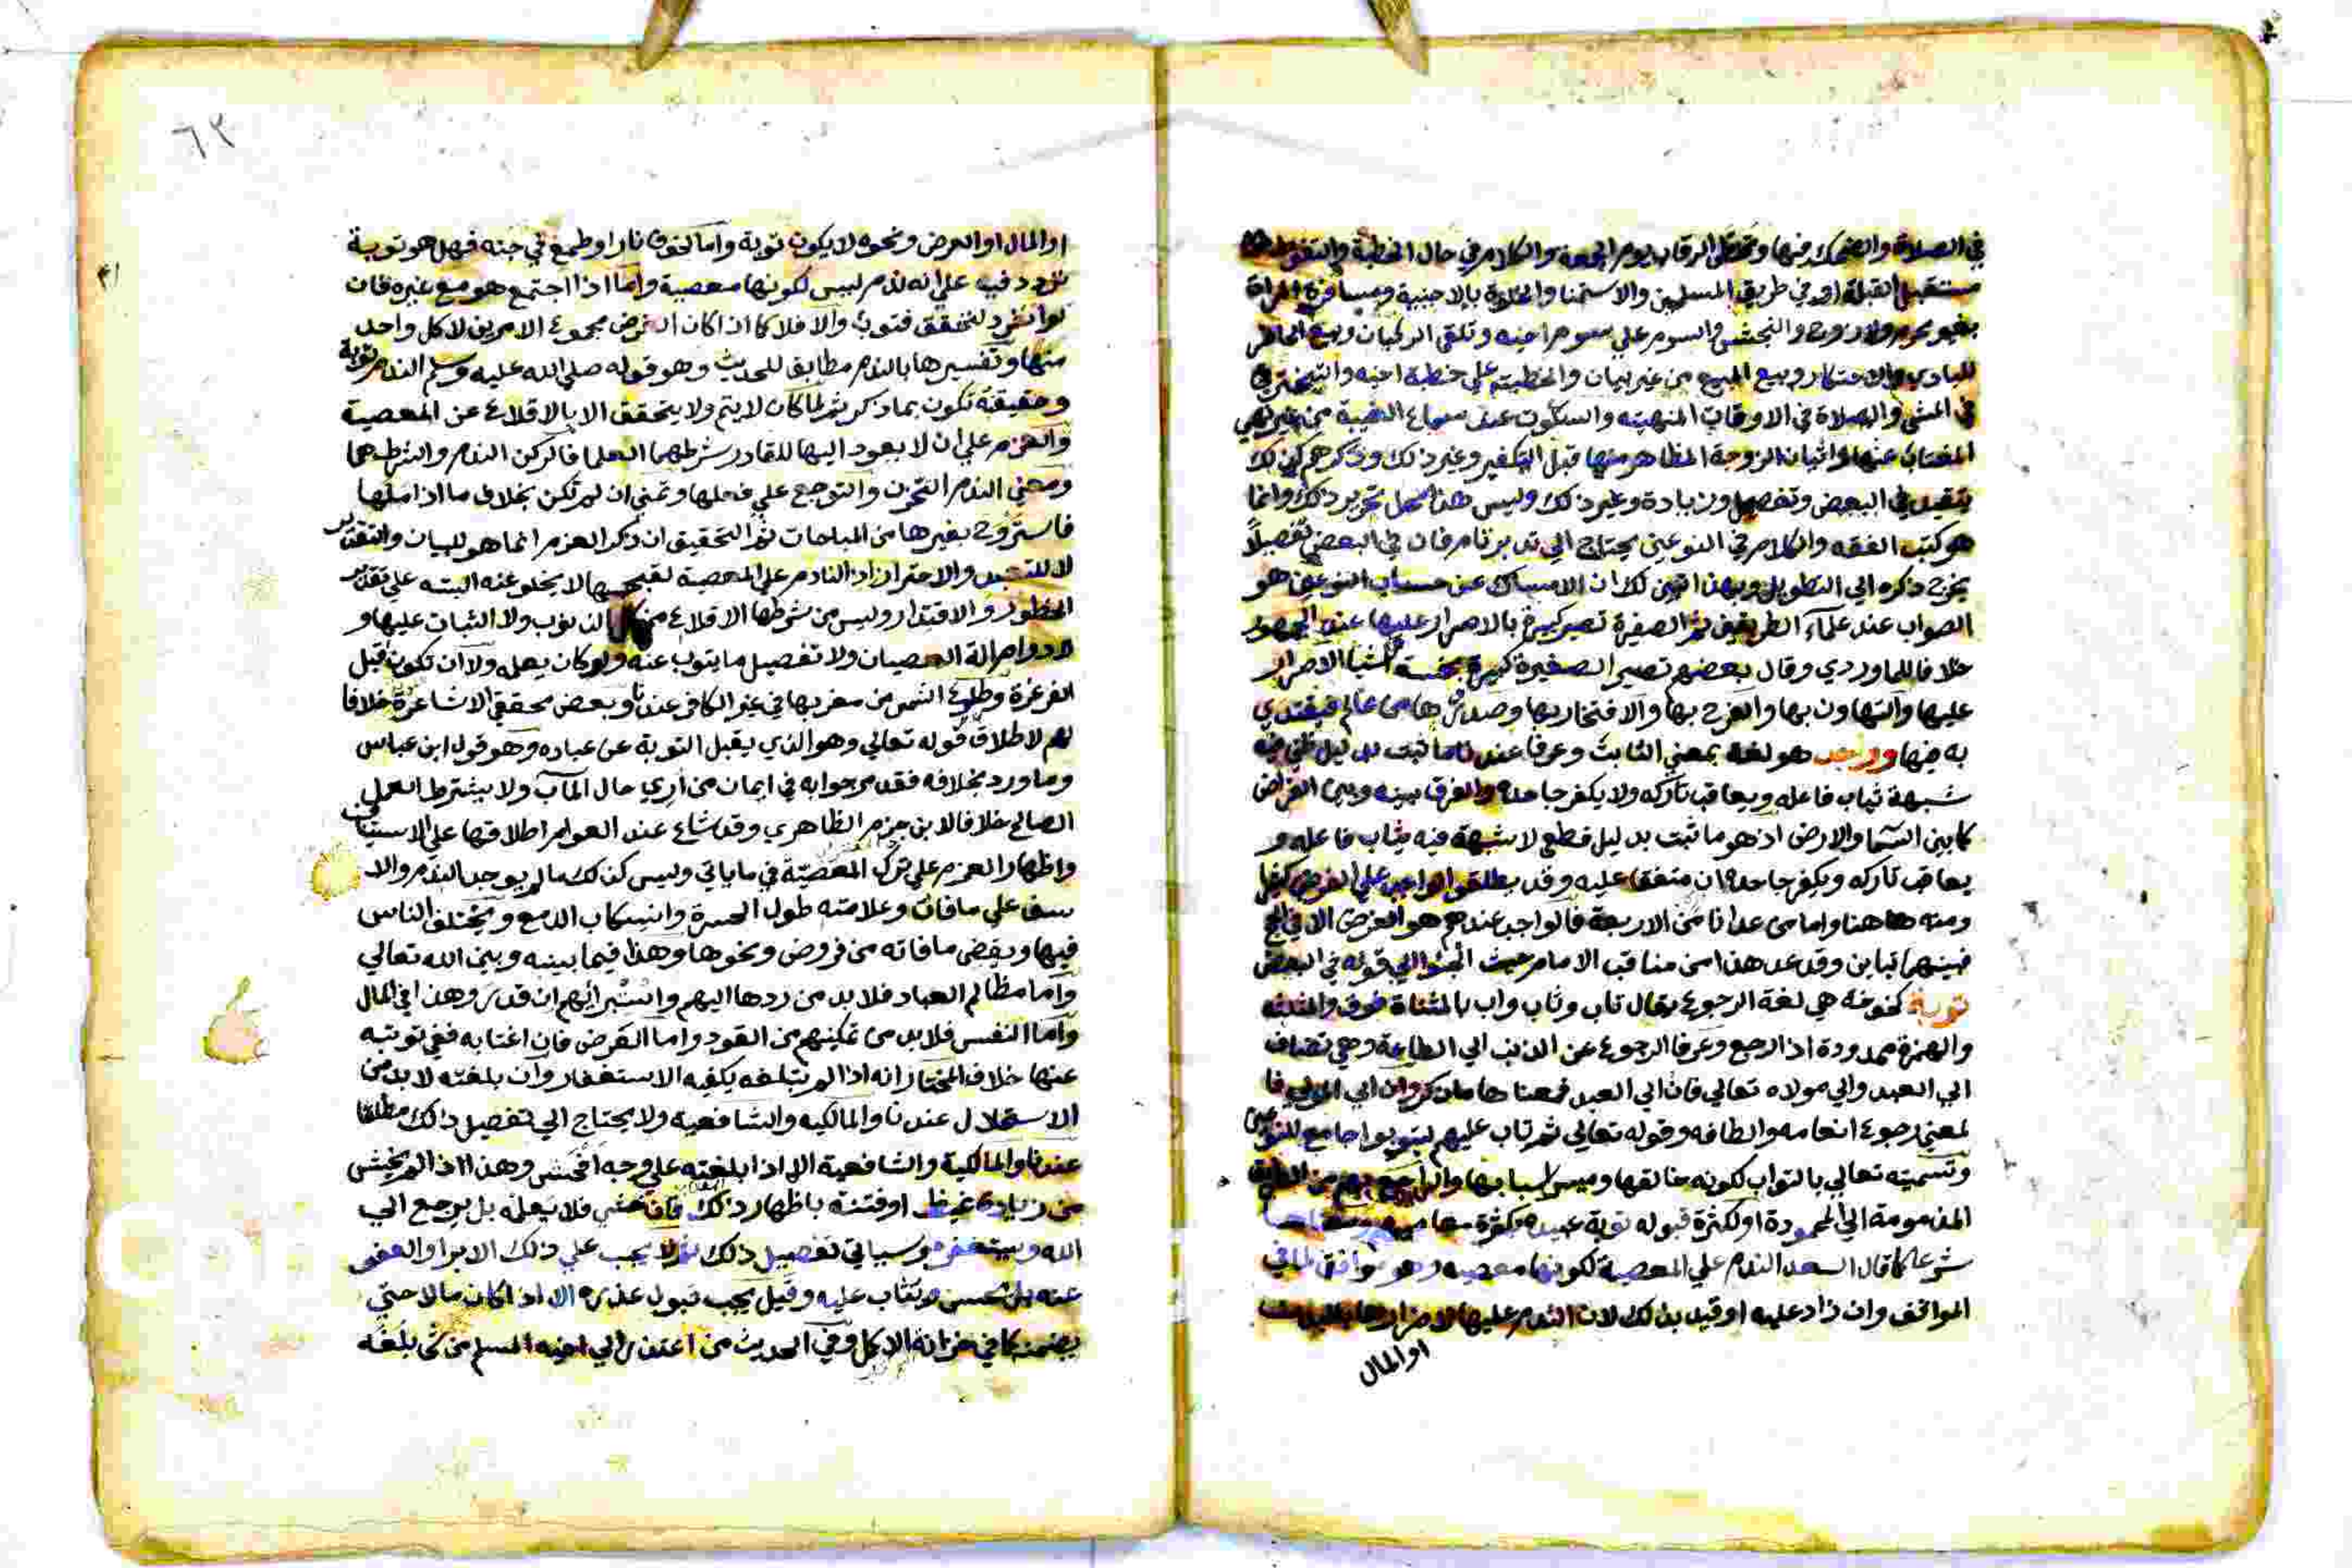 في الصلاة والضحك فيها وتخطي الرقاب يوم الجمعة والكلام في حال الخطبة والتغوط
مستقبل القبلة او في طريق المسلمين والاستمنا والخلوة بالاجنبية ومسافرة المراة
بغير محرم ولا زوج والنجش والسوم علي سوم اخيه وتلقي الركبان وبيع الحاضر
للبادي والاحتكار وبيع المبيع من غير بيان والخطبة علي خطبة اخيه والتبختر
في المشي والصلاة في الاوقات المنهيه والسكوت عند سماع الغيبة من غير نهي
المغتاب عنها واتيان الزوجة المظاهر منها قبل التكفير وغير ذلك وذكرهم لذلك
بتقييد في البعض وتفصيل وزيادة وغير ذلك وليس هذا محل تحرير ذلك وانما
هو كتب الفقه والكلام في النوعين يحتاج الي تدبر تام فان في البعض تفصيلاً
يخرج ذكره الي التطويل وبهذا تبين لك ان الامساك عن حساب النوعين هو
الصواب عند علمآء الطريقين ثم الصغيرة تصير كبيرة بالاصرار عليها عند الجمهور
خلافا للماوردي وقال بعضهم تصير الصغيرة كبيرة بخمسة اشيا الاصرار
عليها والتهاون بها والفرح بها والافتخار بها وصدورها من عالم فيقتدي
به فيها وواجب هو لغة بمعني الثابت وعرفا عندنا ما ثبت بدليل ظني فيه
شبهة يثاب فاعله ويعاقب تاركه ولا يكفر جاحده والفرق بينه وبين الفرض
كما بين السما والارض اذ هو ما ثبت بدليل قطع لا شبهة فيه يثاب فاعله و
يعاقب تاركه ويكفر جاحده ان متفقا عليه وقد يطلق الواجب علي الفرض
ومنه هاهنا واما من عدانا من الاربعة فالواجب عندهم هو الفرض الا في الحج
فبينهما تباين وقد عد هذا من مناقب الامام حيث
توبة كخوفة هي لغة الرجوع يقال تاب وثاب واب بالمثناة فوق والمثلثة
والهمزة ممدودة اذا رجع وعرفا الرجوع عن الذنب الي الطاعة وهي تضاف
الي العبد والي مولاه تعالي فان الي العبد فمعناها ما ذكر وان الي المولي فا
لمعني رجوع انعامه والطافه وقوله تعالي ثم تاب عليهم ليتوبوا جامع للنوعين
وتسميته تعالي بالتواب لكونه خالقها وميسر اسبابها والراجع بهم من الطريق
المذمومة الي المحمودة او لكثرة قبوله توبة عبيده
شرعا كما قال السعد الندم علي المعصية لكونها معصيه وهو موافق لما في
المواقف وان زاد عليه او قيد بذلك لان الندم عليها لاضرارها بالبدن
او المال
٦٢
او المال او العرض ونحوه لا يكون توبة واما لخوف نار او طمع في جنه فهل هو توبة
تردد فيه علي انه ندم ليس لكونها معصية واما اذا اجتمع هو مع غيره فان
لو انفرد لتحقق فتوبة والا فلا كما اذا كان الغرض مجموع الامرين لا كل واحد
منها وتفسيرها بالندم مطابق للحديث وهو قوله صلي الله عليه وسلم الندم توبة
وحقيقته تكون بما ذكر ثم لما كان لا يتم ولا يتحقق الا بالاقلاع عن المعصية
والعزم علي ان لا يعود اليها للقادر شرطهما العلما فالركن الندم والشرط هما
ومعني الندم التحزن والتوجع علي فعلها وتمني ان لم تكن بخلاف ما اذا ملها
فاستروح بغيرها من المباحات ثم التحقيق ان ذكر العزم انما هو للبيان والتقرير
لا للتقييد والاحتراز اذ النادم علي المعصية لقبحها لا يخلو عنه البته علي تقدير
الخطور والاقتدار وليس من شرطها الاقلاع من الذنوب ولا الثبات عليها و
لا دوام الة العصيان ولا تفصيل ما يتوب عنه ولو كان يعله ولا ان تكون قبل
الغرغرة وطلوع الشمس من مغربها في غير الكافر عندنا وبعض محققي الاشاعرة خلافا
لهم لاطلاق قوله تعالي وهو الذي يقبل التوبة عن عباده وهو قول ابن عباس
وما ورد بخلافه فقد مر جوابه في ايمان من اري حال المآب ولا يشترط العمل
الصالح خلافا لابن حزم الظاهري وقد شاع عند العوام اطلاقها علي
واظهار العزم علي ترك المعصية في ما ياتي وليس كذلك ما لم يوجد الندم والا
سف علي مافات وعلامته طول الحسرة وانسكاب الدمع ويختلف الناس
فيها ويقضي مافاته من فروض ونحوها وهذا فيما بينه وبين الله تعالي
واما مظالم العباد فلا بد من ردها اليهم واستبرائهم ان قدر وهذا في المال
واما النفس فلا بد من تمكينهم من القود واما العرض فان اغتابه ففي توبته
عنها خلاف المختار انه اذا لم يتبلغه يكفيه الاستغفار وان بلغته لا بد من
الاستحلال عندنا والمالكيه والشافعيه ولا يحتاج الي تفصيل ذلك مطلقا
عندنا والمالكية والشافعية الا اذا بلغته علي وجه افحش وهذا اذا لم يخش
من زيادة غيظ او فتنة باظهار ذلك فان خشي فلا يعلمه بل يرجع الي
الله ويستغفره وسياتي تفصيل ذلك ثم لا يجب علي ذلك الابرا والعفو
عنه بل يحسن ويثاب عليه وقيل يجب قبول عذره الا اذا كان مالا حتي
يضمنه كما في خزانة الاكمل وفي الحديث من اعتذر الي اخيه المسلم من شي بلغه